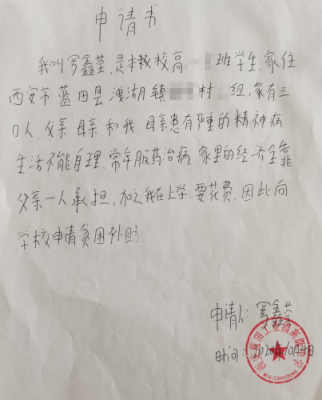 申请书
我叫罗鑫莹,是本校高 班学生,家住
西安市蓝田县洩湖镇 村 组,家有三
口人,父亲 母亲和我,母亲患有严重的精神病
生活不能自理,常年服药治病,家里的经济全靠
父亲一人承担,加之我在上学,要花费,因此向
学校申请贫困补助.
申请人:罗鑫莹
时间: